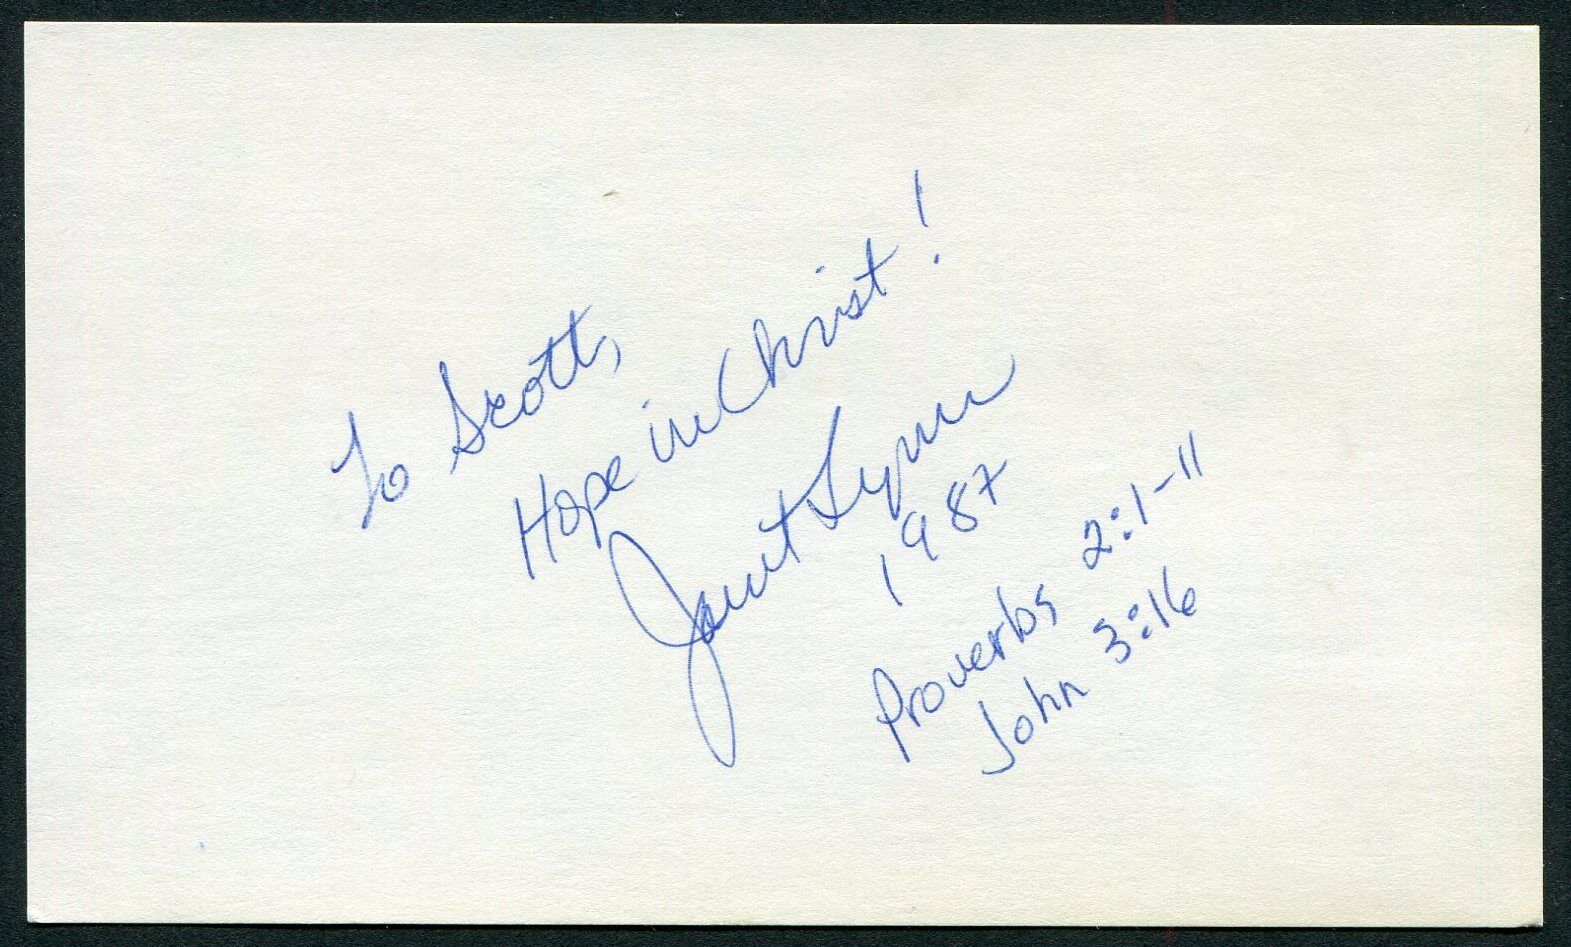 To Scott,
Hope in Christ!
Janet Lynn
1987
Proverbs 2:1-11
John 3:16